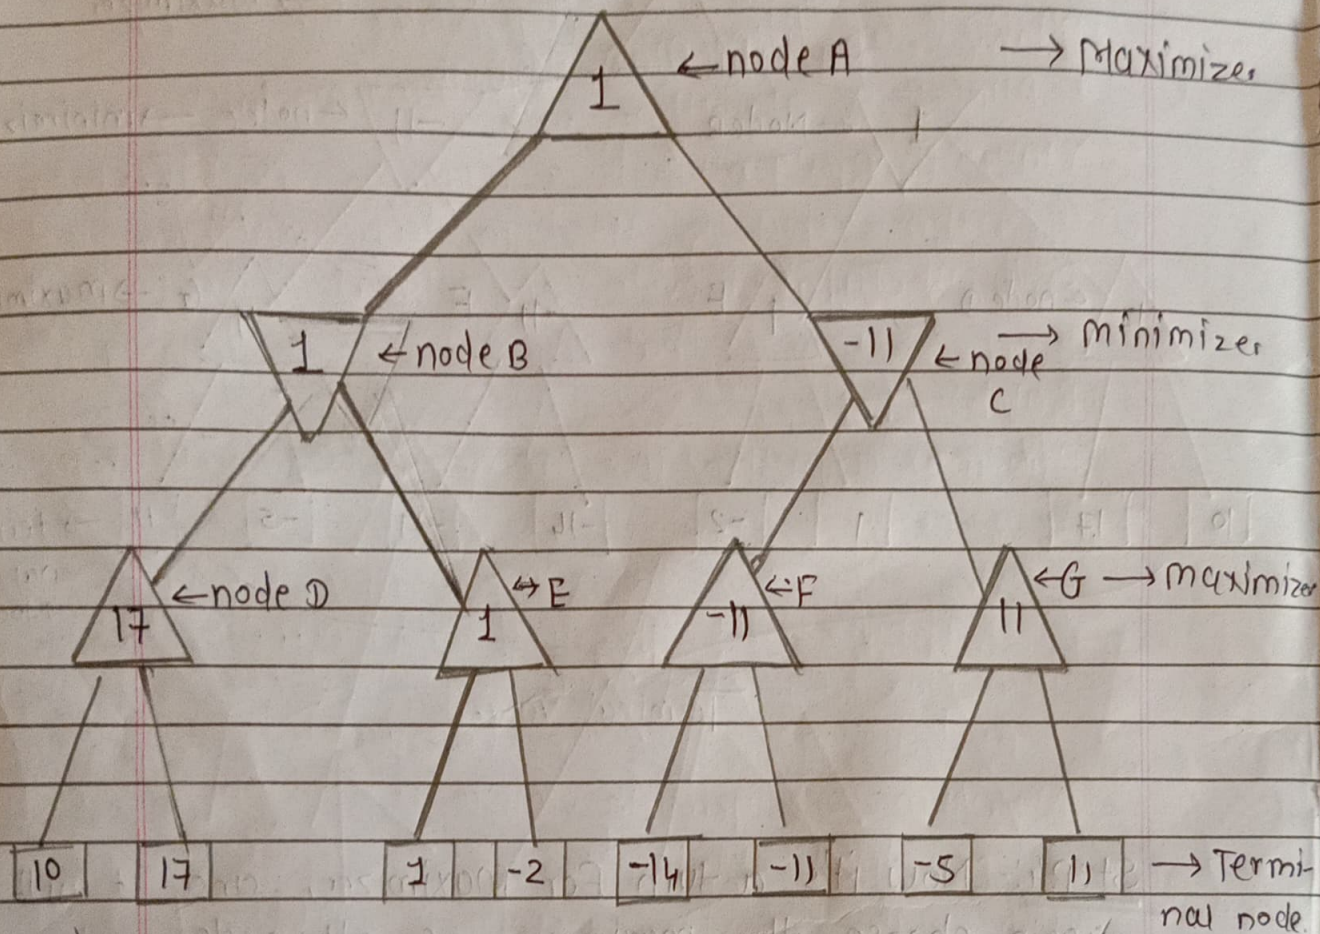 1 ←node A → Maximizer
1 ←node B -11 ←node C → minimizer
17 ←node D 1 ↔E -11 ←F 11 ←G → maximizer
10 17 1 -2 -14 -11 -5 11 → Termi-
nal node.